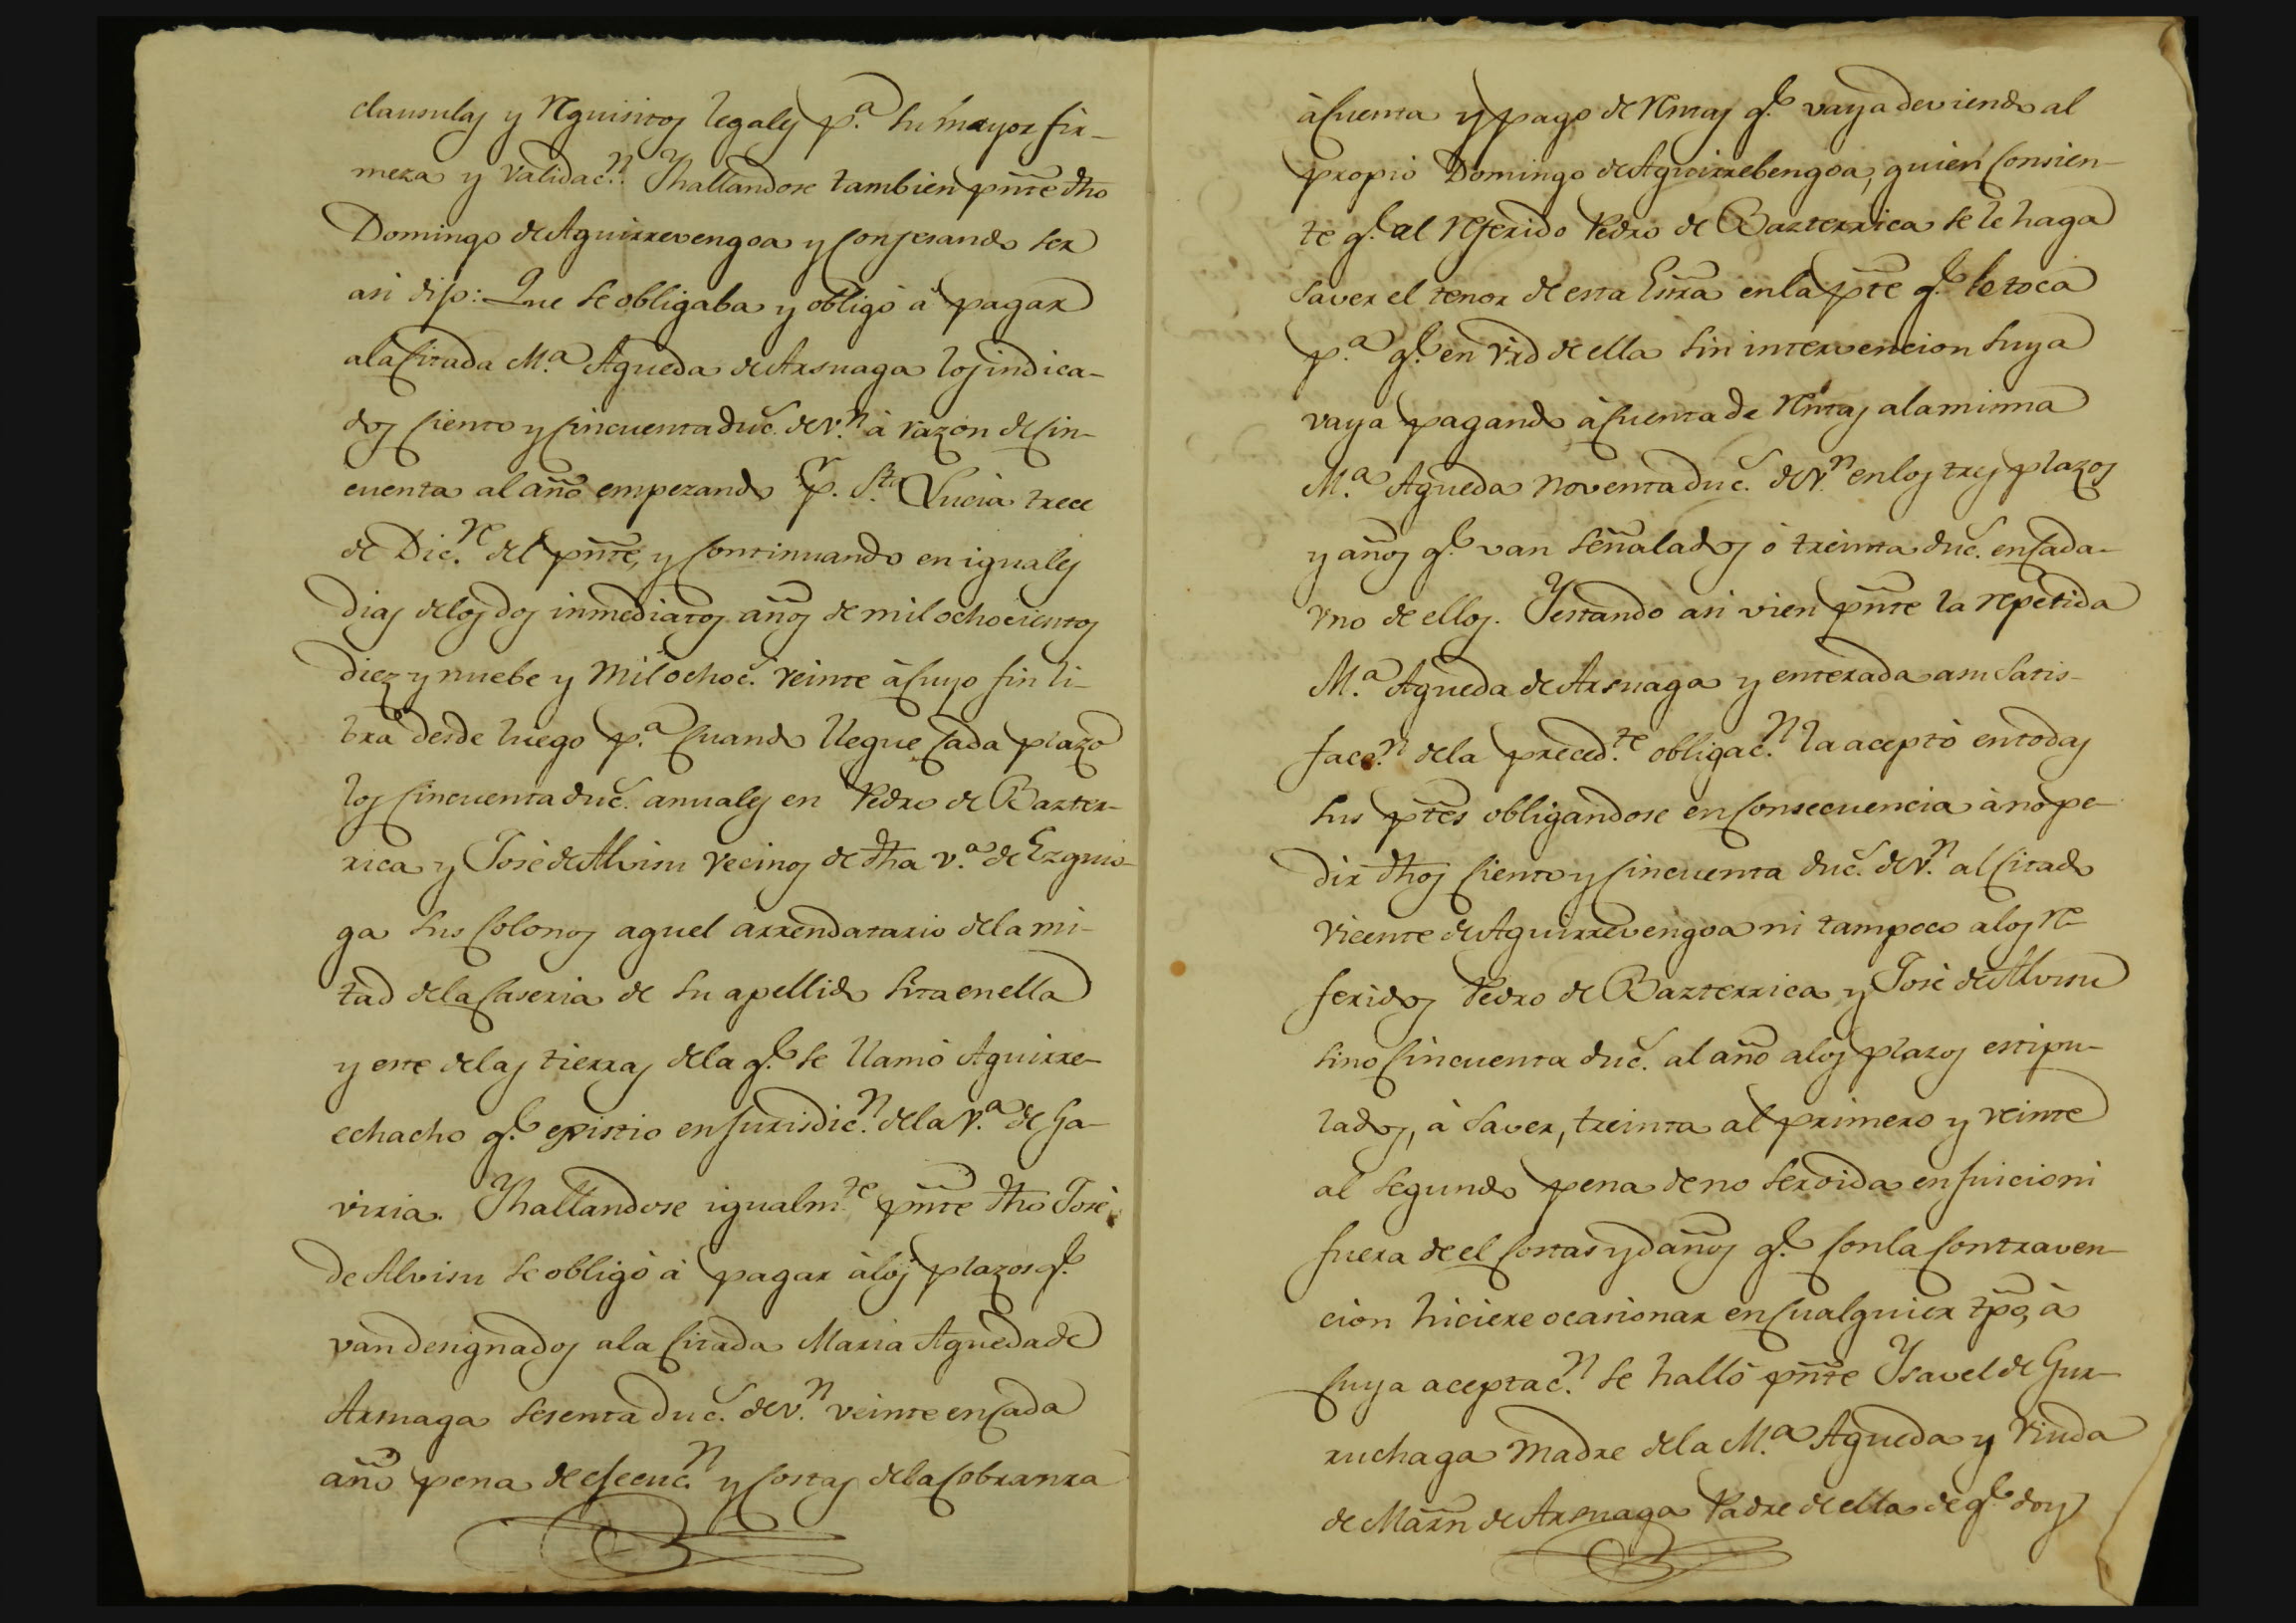 clausulas y requisitos legales p.ª su mayor fir-
meza y validac.ⁿ Y hallandose tambien pn̄te dh̄o
Domingo de Aguirrevengoa y confesando ser
asi dijo: Que se obligaba y obligó à pagar
ala citada M.ª Agueda de Arsuaga los indica-
dos ciento y cincuenta duc.ˢ de v.ⁿ à razon de cin-
cuenta al año empezando p.ʳ S.ᵗᵃ Lucia trece
de Dic.ʳᵉ del pn̄te, y continuando en iguales
dias delos dos inmediatos años de mil ochocientos
diez y nuebe y mil ochoc.ˢ veinte à cuyo fin li-
bra desde luego p.ª cuando llegue cada plazo
los cincuenta duc.ˢ anuales en Pedro de Bazter-
rica y José de Alvisu vecinos de dh̄a v.ª de Ezquio-
ga sus colonos aquel arrendatario dela mi-
tad dela caseria de su apellido sita en ella
y este delas tierras dela q.ᵉ se llamó Aguirre-
echacho q.ᵉ existio en jurisdic.ⁿ dela v.ª de Ga-
viria. Y hallandose igualm.ᵗᵉ pn̄te dh̄o José
de Alvisu se obligó à pagar àlos plazos q.ᵉ
van designados ala citada Maria Agueda de
Arsuaga sesenta duc.ˢ de v.ⁿ veinte en cada
año pena de ejecuc.ⁿ y costas dela cobranza
à cuenta y pago de rentas q.ᵉ vaya deviendo al
propio Domingo de Aguirrebengoa, quien consien-
te q.ᵉ al referido Pedro de Bazterrica se le haga
saver el tenor de esta Esn̄ra en la pte q.ᵉ le toca
p.ª q.ᵉ en vrd de ella sin intervencion suya
vaya pagando à cuenta de rentas ala misma
M.ª Agueda noventa duc.ˢ de v.ⁿ en los tres plazos
y años q.ᵉ van señalados ó treinta duc.ˢ en cada
vno de ellos. Y estando asi vien pn̄te la repetida
M.ª Agueda de Arsuaga y enterada asu satis-
facc.ⁿ dela preced.ᵗᵉ obligac.ⁿ la aceptó en todas
sus ptes obligandose en consecuencia à no pe-
dir dh̄os ciento y cincuenta duc.ˢ de v.ⁿ al citado
Vicente de Aguirrevengoa ni tampoco alos re-
feridos Pedro de Bazterrica y José de Alvisu
sino cincuenta duc.ˢ al año alos plazos estipu-
lados, à saver, treinta al primero y veinte
al segundo pena de no ser oida en juicio ni
fuera de el costas y daños q.ᵉ con la contraven-
cion hiciere ocasionar en cualquier tp̄o, à
cuya aceptac.ⁿ se halló pn̄te Ysavel de Gur-
ruchaga Madre dela M.ª Agueda y Viuda
de Marn̄ de Arsuaga Padre de ella de q.ᵉ doy